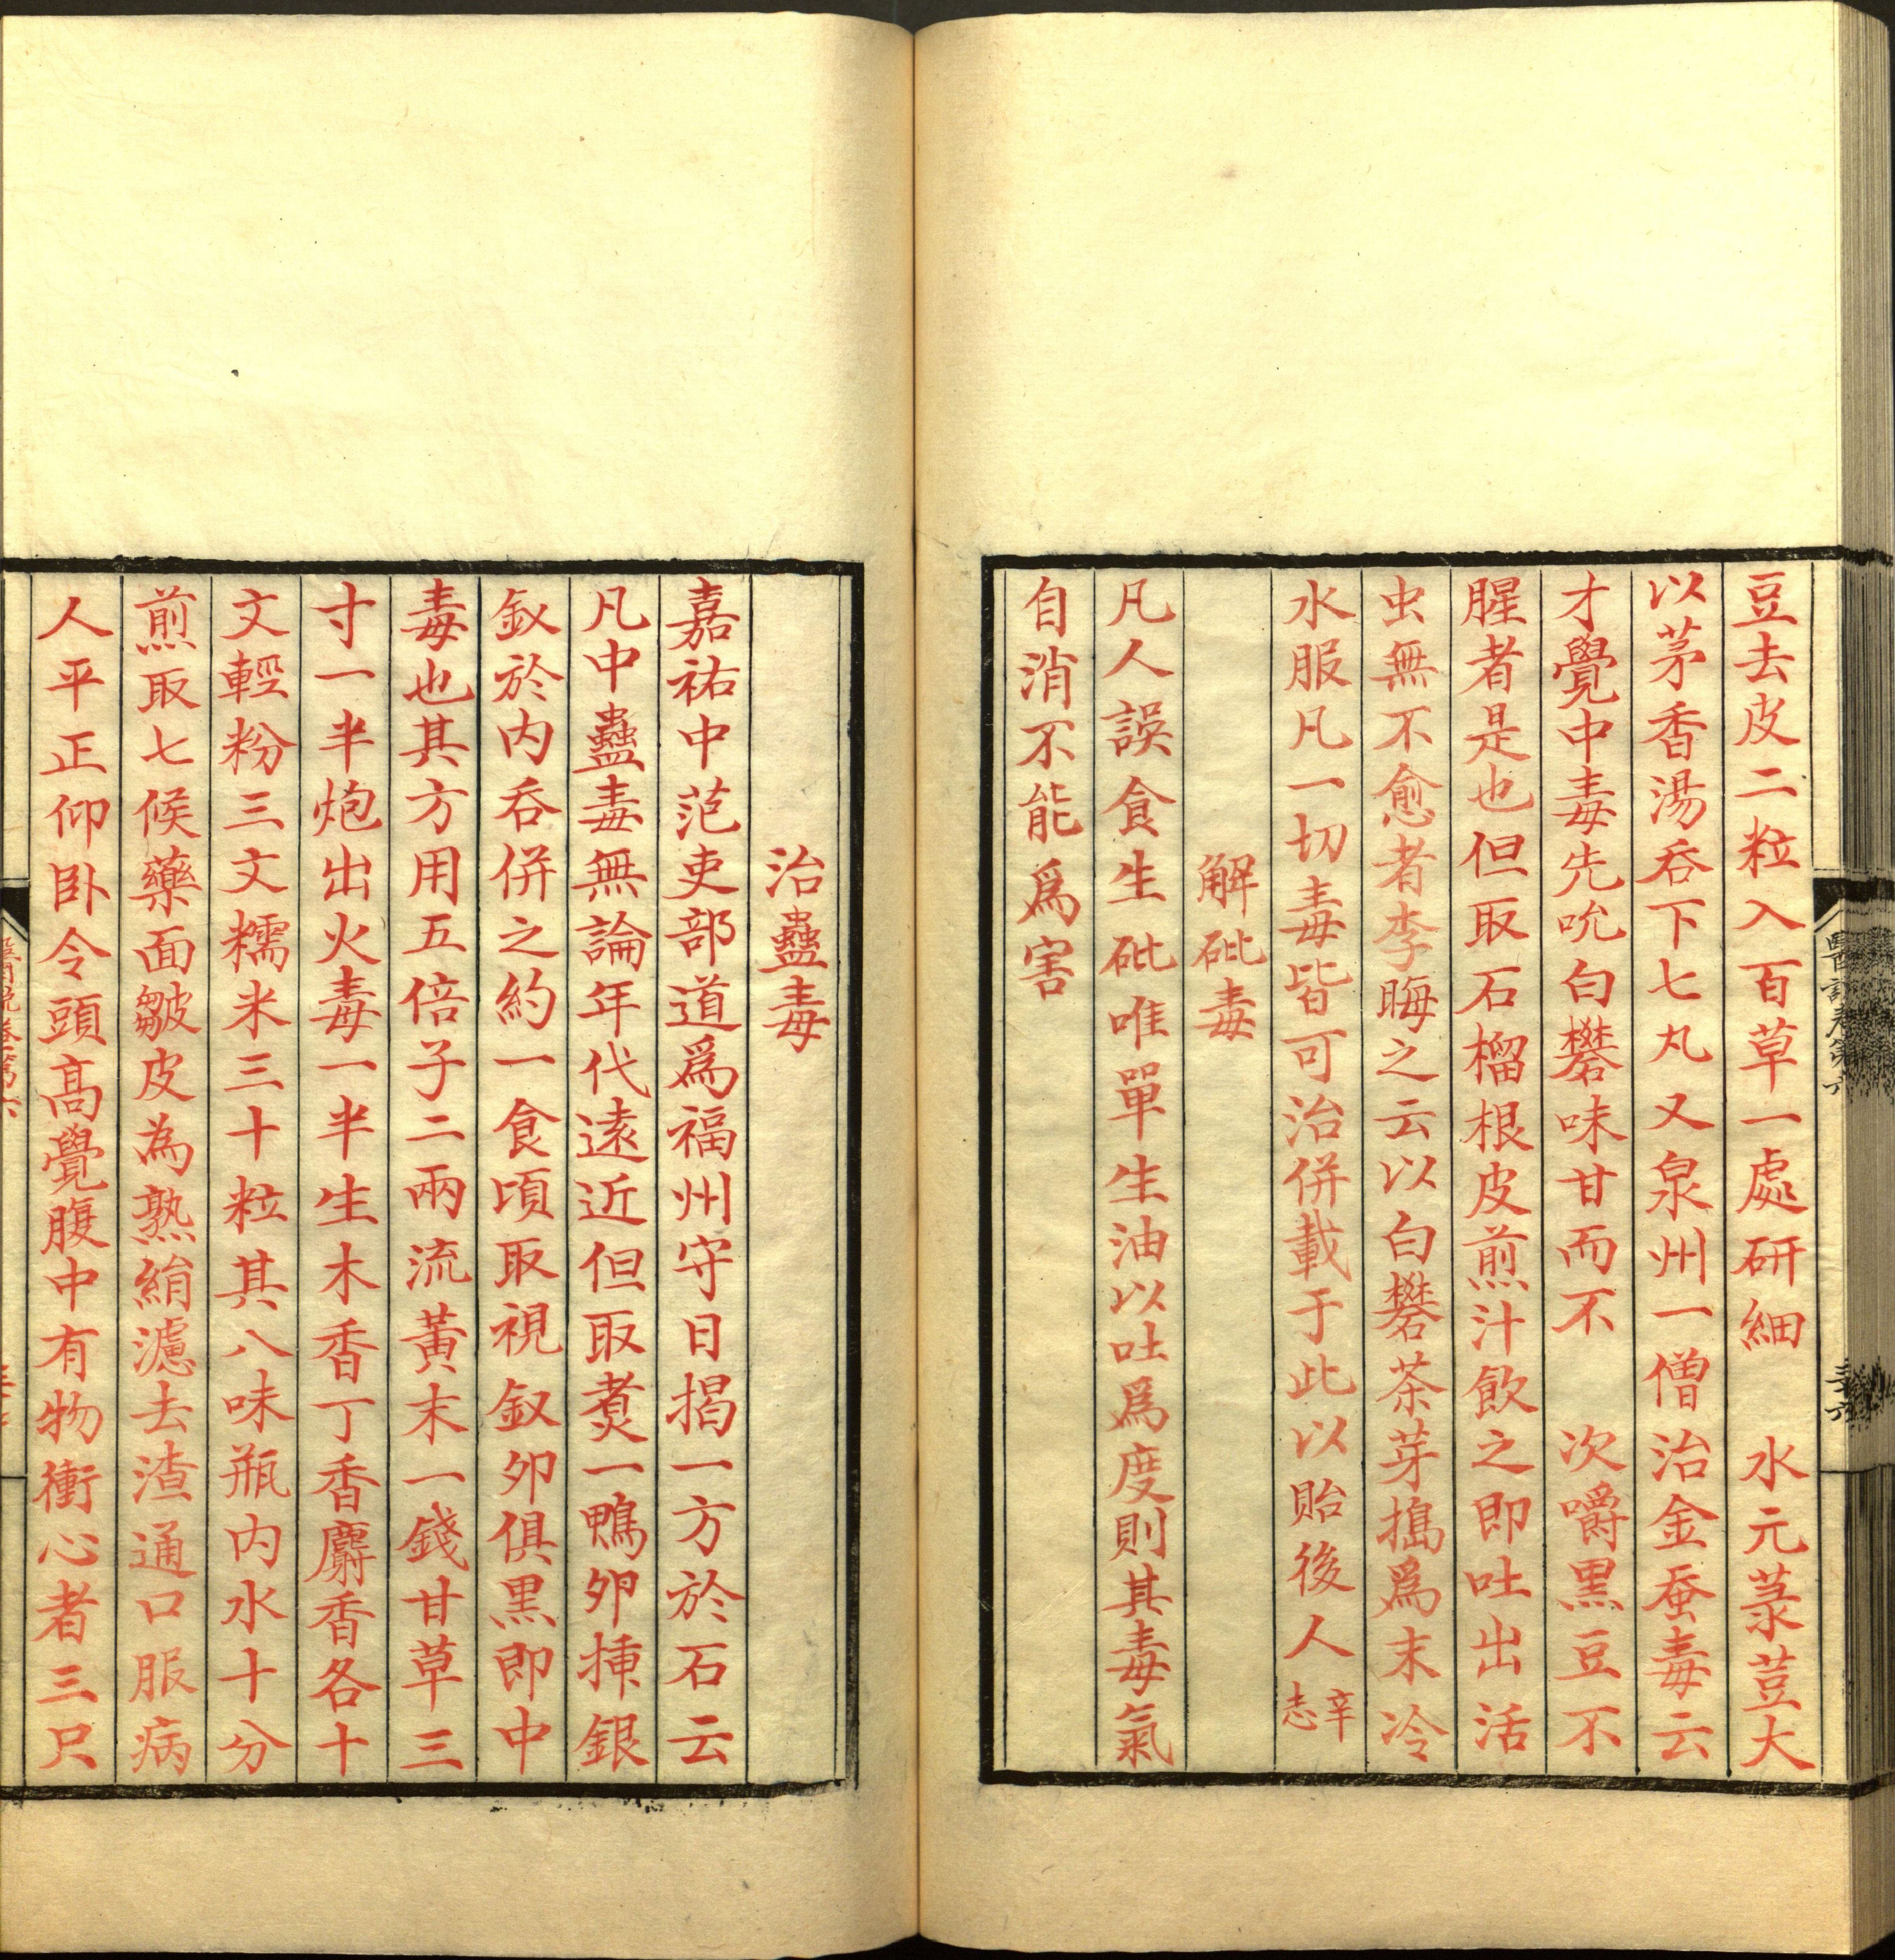 豆去皮二粒入百草一處研細　水元菉荳大
以茅香湯吞下七丸又泉州一僧治金蚕毒云
才覺中毒先吮白礬味甘而不　次嚼黑豆不
腥者是也但取石榴根皮煎汁飲之即吐出活
虫無不愈者李晦之云以白礬茶芽搗爲末冷
水服凡一切毒皆可治併載于此以貽後人辛志
解砒毒
凡人誤食生砒唯單生油以吐爲度則其毒氣
自消不能爲害
治蠱毒
嘉祐中范吏部道爲福州守日揭一方於石云
凡中蠱毒無論年代遠近但取煑一鴨卵揷銀
釵於内吞併之約一食頃取視釵卵俱黑即中
毒也其方用五倍子二兩流黃末一錢甘草三
寸一半炮出火毒一半生木香丁香麝香各十
文輕粉三文糯米三十粒其八味瓶内水十分
煎取七候藥面皺皮為熟絹濾去渣通口服病
人平正仰卧令頭髙覺腹中有物衝心者三只